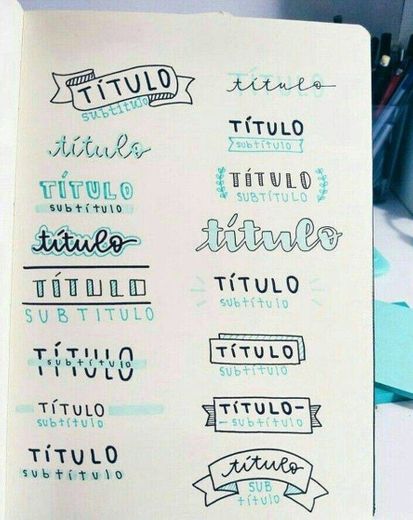 TÍTULO
subtítulo
título
TÍTULO
subtítulo
título
TÍTULO
SUBTITULO
TÍTULO
subtítulo
TÍTULO
subtítulo
TÍTULO
subtítulo
título
TÍTULO
subtítulo
TÍTULO
SUBTÍTULO
título
TÍTULO
subtítulo
TÍTULO
subtítulo
TÍTULO-
-subtítulo
título
SUB
título